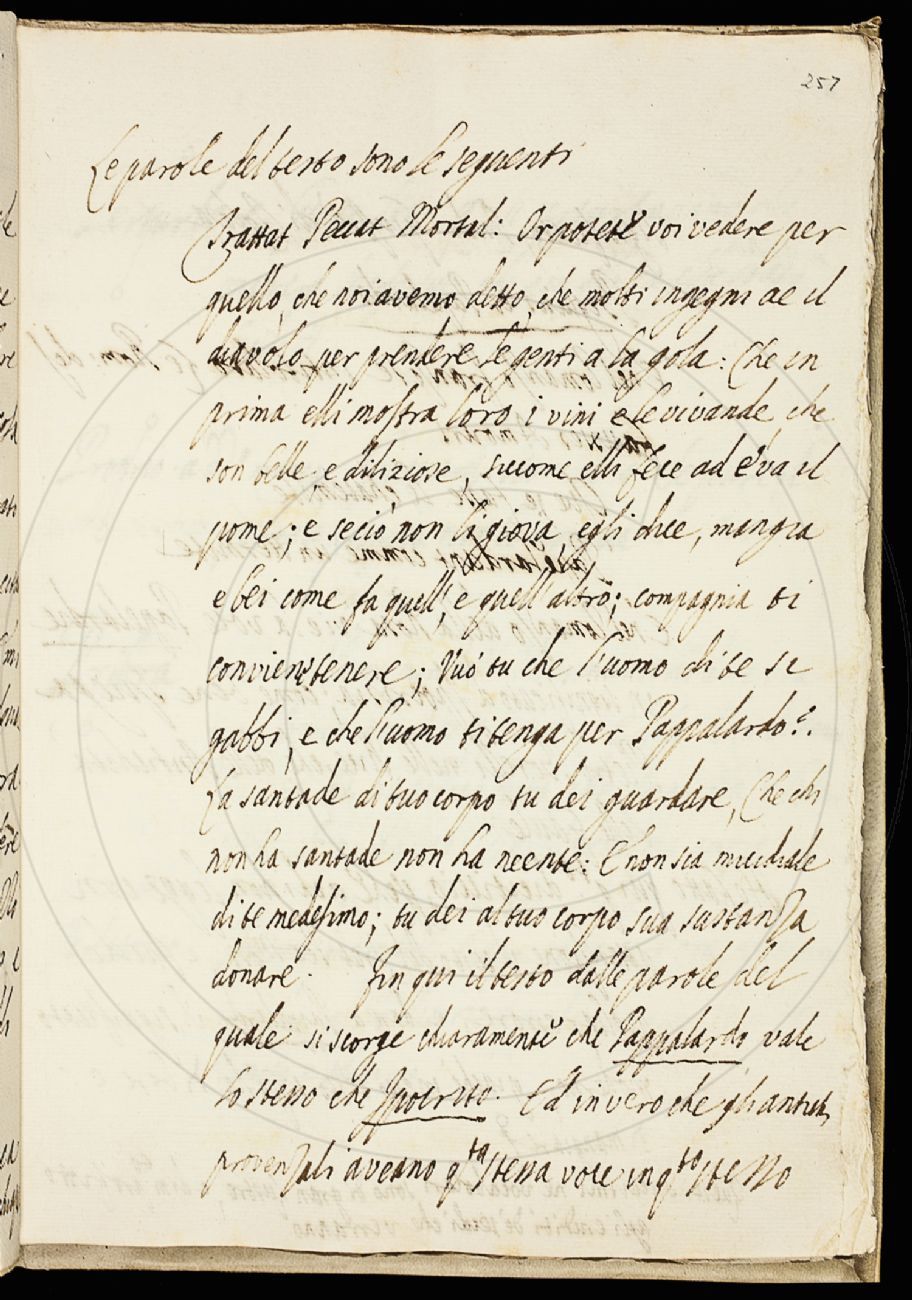 257
Le parole del testo sono le seguenti
Trattat Peccat Mortal: Or potete voi vedere per
quello, che noi avemo detto, che molti ingegni ae il
diavolo per prendere le genti a la gola: Che in
prima elli mostra loro i vini e le vivande che
son belle, e diliziose, siccome elli fece ad Eva il
pome; e se ciò non li giova egli dice, mangia
e bei come fa quell', e quell'altro; compagnia ti
convien tenere; Vuò tu che l'uomo di te si
gabbi, e che l'uomo ti tenga per Pappalardo?.
La santade di tuo corpo tu dei guardare, Che chi
non ha santade non ha neente: E non sia micidiale
di te medesimo; tu dei al tuo corpo sua sustanza
donare. Fin qui il testo dalle parole del
quale si scorge chiaramente che Pappalardo vale
lo stesso che Ipocrito. Ed in vero che gli antichi
provenzali aveano q.ta stessa voce in q.to stesso